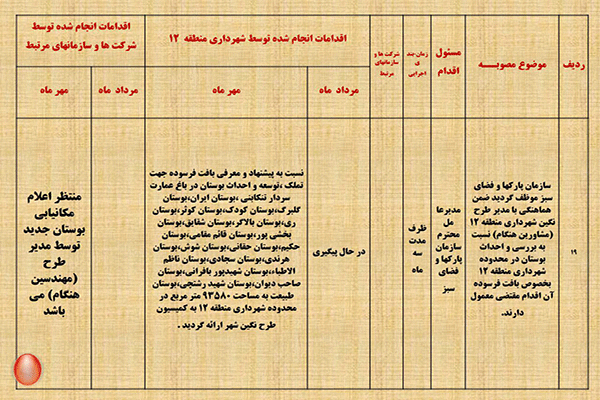 ردیف
موضوع مصوبـــه
مسئول
اقدام
زمان‌بند
ی
اجرایی
شرکت ها و
سازمانهای
مرتبط
اقدامات انجام شده توسط شهرداری منطقه ۱۲
مرداد ماه
مهر ماه
اقدامات انجام شده توسط
شرکت ها و سازمانهای مرتبط
مرداد ماه
مهر ماه
۱۹
سازمان پارکها و فضای
سبز موظف گردید ضمن
هماهنگی با مدیر طرح
نگین شهرداری منطقه ۱۲
(مشاورین هنگام) نسبت
به بررسی و احداث
بوستان در محدوده
شهرداری منطقه ۱۲
بخصوص بافت فرسوده
آن اقدام مقتضی معمول
دارند.
مدیرعا
مل
محترم
سازمان
پارکها و
فضای
سبز
ظرف
مدت
سه
ماه
در حال پیگیری
نسبت به پیشنهاد و معرفی بافت فرسوده جهت
تملک ،توسعه و احداث بوستان در باغ عمارت
سردار تنکابنی ،بوستان ایران،بوستان
گلبرگ،بوستان کودک،بوستان کوثر،بوستان
ری،بوستان بالاگر،بوستان شقایق،بوستان
بخشی پور،بوستان قائم مقامی،بوستان
حکیم،بوستان حقانی،بوستان شوش،بوستان
هرندی،بوستان سجادی،بوستان ناظم
الاطباء،بوستان شهیدپور باقرانی،بوستان
صاحب دیوان،بوستان شهید رشتچی،بوستان
طبیعت به مساحت ۹۳۵۸۰ متر مربع در
محدوده شهرداری منطقه ۱۲ به کمیسیون
طرح نگین شهر ارائه گردید .
منتظر اعلام
مکانیابی
بوستان جدید
توسط مدیر
طرح
(مهندسین
هنگام) می
باشد